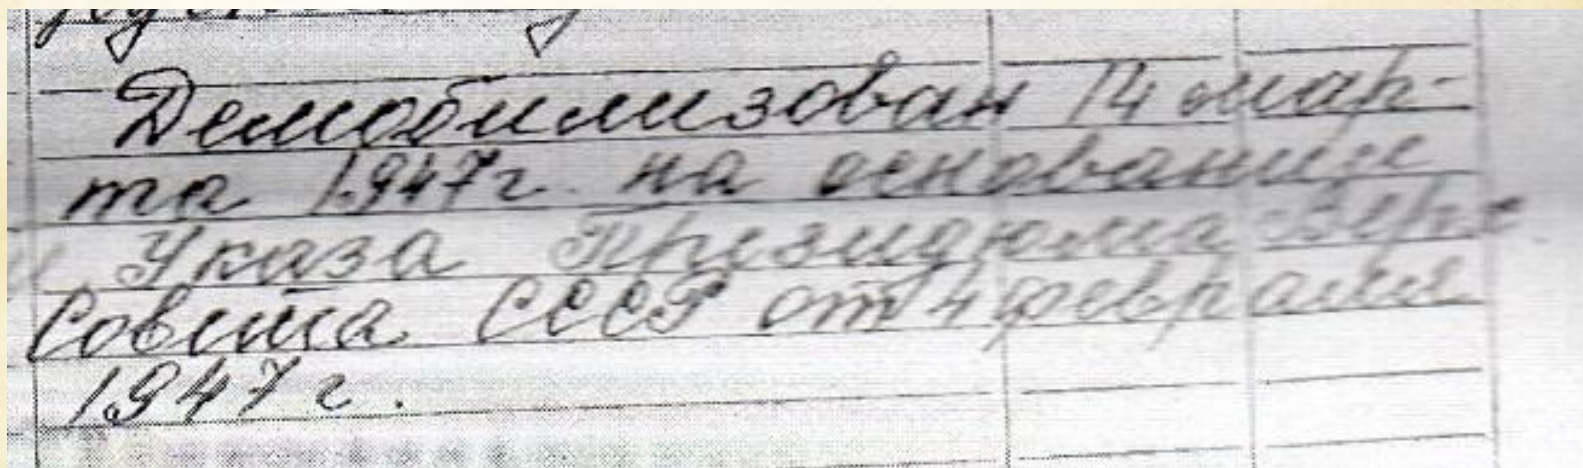 Демобилизован 14 мар-
та 1947г. на основании
Указа Президиума Верх.
Совета СССР от 4 февраля
1947 г.